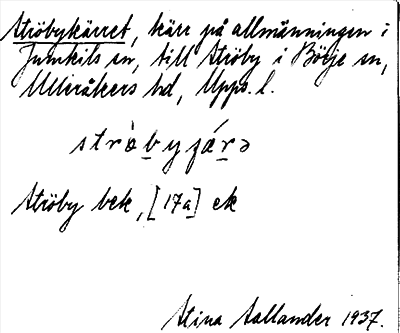 Ströbykärret, kärr på allmänningen i
Jumkils sn, till Ströby i Börje sn,
Ulleråkers hd, Upps. l.
ströbyɟárə
Ströby bek, [17a] ek
Stina Sallander 1937.